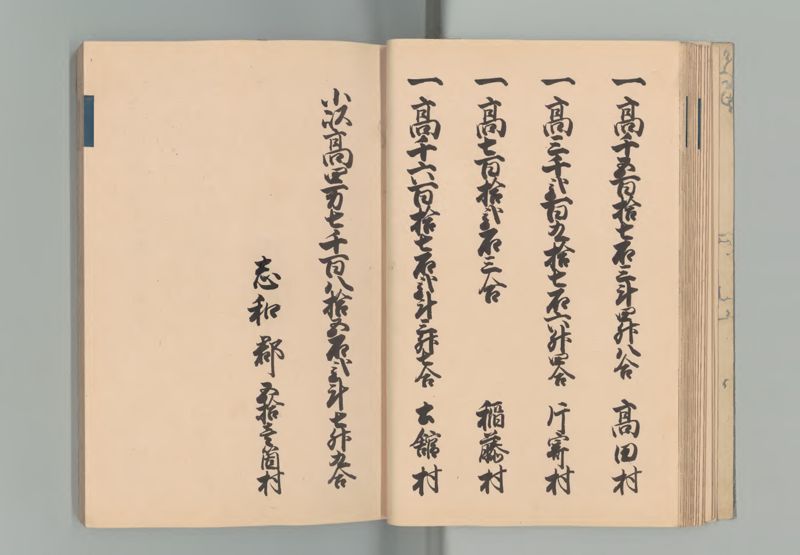 一高千五百拾七石三斗四舛八合 高田村
一高三千弐百九拾七石六舛四合 片寄村
一高七百拾弐石三合 稲藤村
一高千六百拾七石弐斗三舛七合 土舘村
小以高四万七千百八拾五石弐斗七舛九合
志和郡 五拾壱箇村